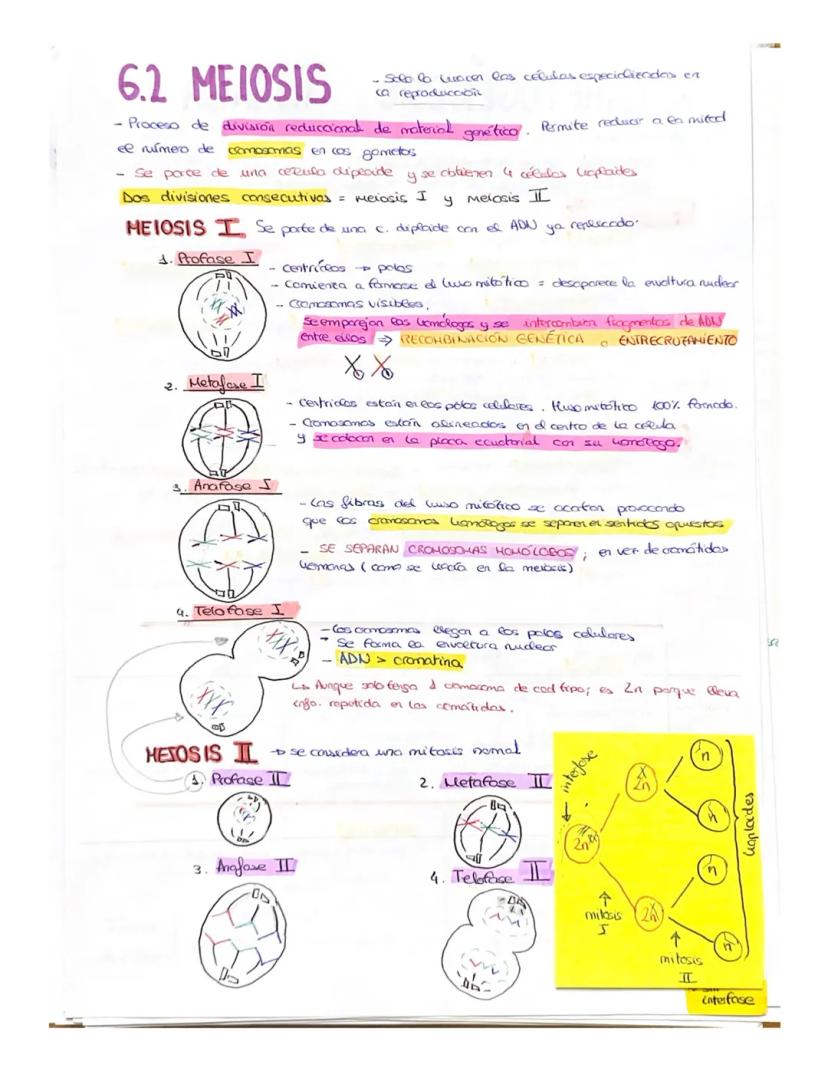 6.2 MEIOSIS
- Solo lo hacen las células especializadas en
la reproducción
- Proceso de división reduccional de material genético. Permite reducir a la mitad
el número de cromosomas en los gametos
- Se parte de una celula diploide y se obtienen 4 células haploides
Dos divisiones consecutivas = Meiosis I y meiosis II
MEIOSIS I Se parte de una c. diploide con el ADN ya replicado.
1. Profase I
- Centríolos → polos
- Comienza a formarse el huso mitótico = desaparece la envoltura nuclear
- Cromosomas visibles.
Se emparejan los homólogos y se intercambian fragmentos de ADN
entre ellos ⇒ RECOMBINACIÓN GENÉTICA o ENTRECRUZAMIENTO
2. Metafase I
- Centriolos están en los polos celulares. Huso mitótico 100% formado.
- Cromosomas están alineados en el centro de la célula
y se colocan en la placa ecuatorial con su homólogo.
3. Anafase I
- Las fibras del huso mitótico se acortan provocando
que los cromosomas homólogos se separen en sentidos opuestos
- SE SEPARAN CROMOSOMAS HOMÓLOGOS; en vez de cromátidas
hermanas (como se hacía en la meiosis)
4. Telofase I
- Los cromosomas llegan a los polos celulares
- Se forma la envoltura nuclear
- ADN > cromatina
↳ Aunque solo tenga 1 cromosoma de cad tipo; es 2n porque lleva
info. repetida en las cromátidas.
MEIOSIS II → se considera una mitosis normal
1. Profase II
2. Metafase II
3. Anafase II
4. Telofase II
interfase
2n
2n
2n
n
n
n
n
haploides
mitosis
I
mitosis
II
interfase